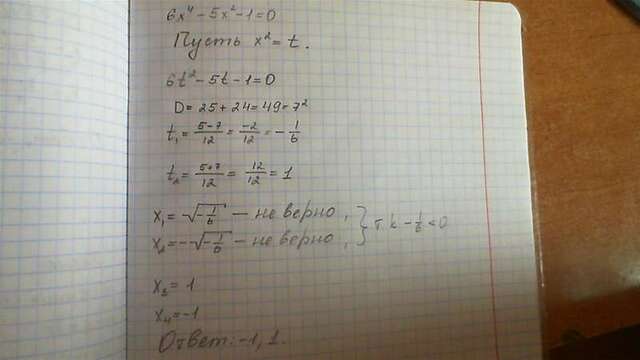 6x⁴-5x²-1=0
Пусть x²=t.
6t²-5t-1=0
D=25+24=49=7²
t₁=(5-7)/12=-2/12=-1/6
t₂=(5+7)/12=12/12=1
x₁=√(-1/6) — не верно,
x₂=-√(-1/6) — не верно, } т.к -1/6<0
x₃=1
x₄=-1
Ответ: -1, 1.